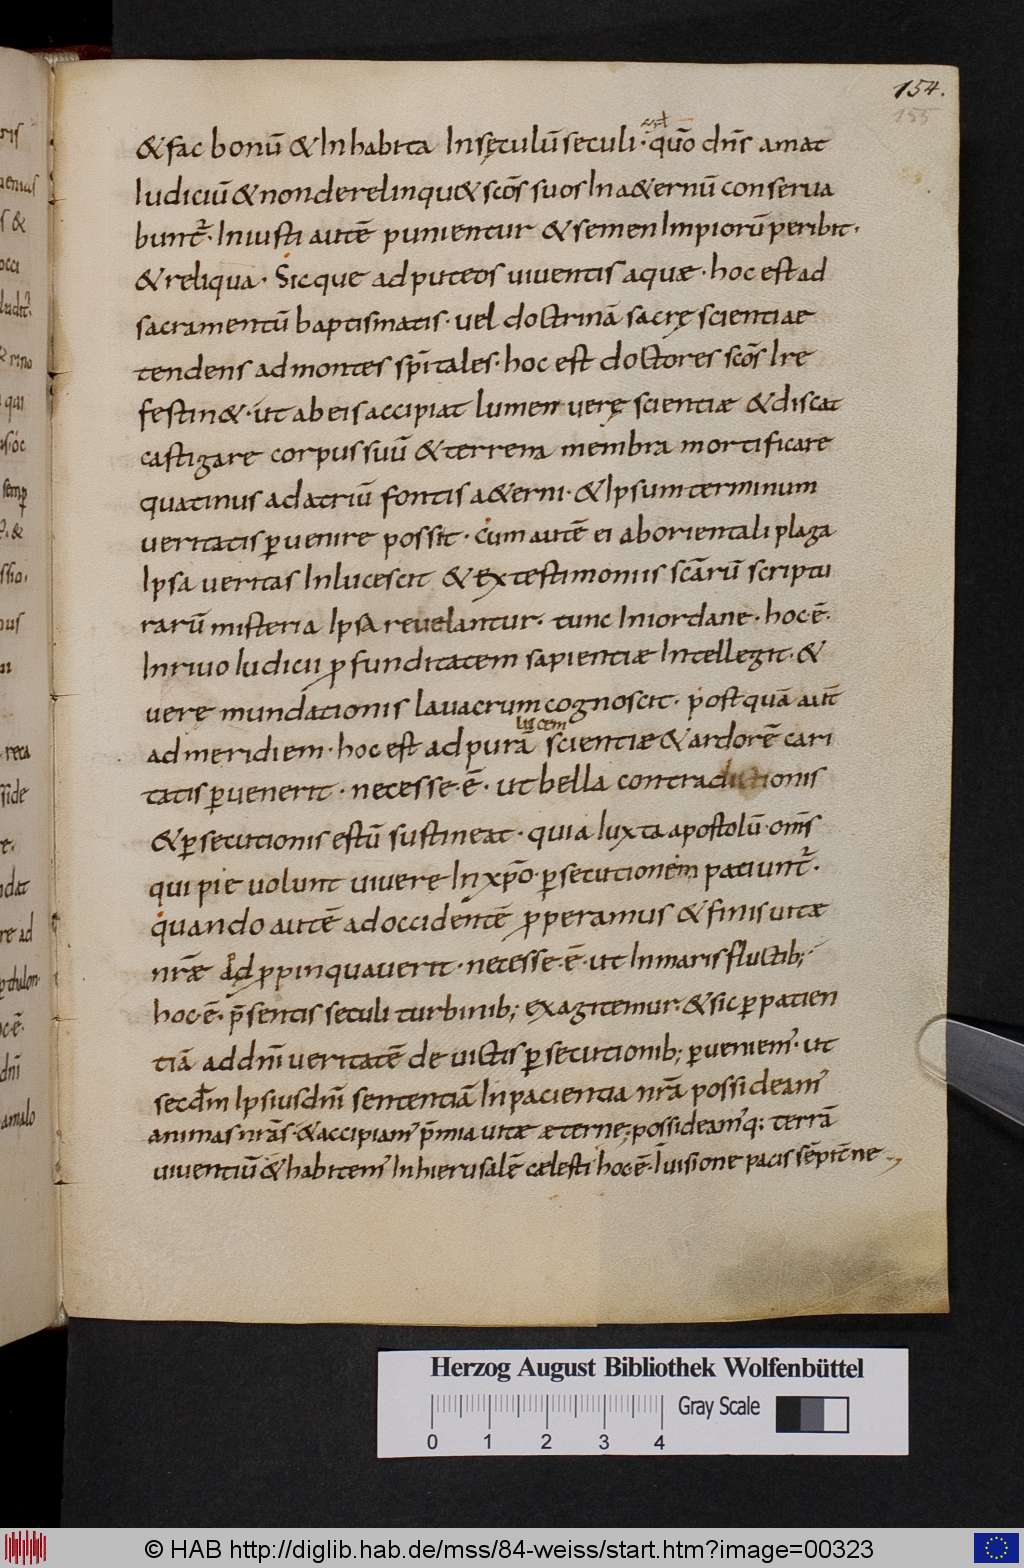 154.
155
& fac bonū & Inhabita Insęculū seculi · quō dn̄s amat
Iudiciū & non derelinqu& sc̄os suos In a&ernū conserva
bunt᷑ · Iniusti autē punientur & semen Impiorū peribit ·
& reliqua · Sicque ad puteos viventis aquæ · hoc est ad
sacramentū baptismatis · vel doctrinā sacrę scientiae
tendens ad montes sp̄itales · hoc est doctores sc̄os Ire
festin& · ut ab eis accipiat lumen verę scientiæ & discat
castigare corpus suū & terrena membra mortificare
quatinus ad atriū fontis a&erni · & Ipsum terminum
veritatis ꝑvenire possit · cum autē ei ab orientali plaga
Ipsa veritas Inlucescit & ex testimoniis sc̄arū scriptu
rarū misteria Ipsa revelantur · tunc In iordane · hoc · ē ·
In rivo Iudicii ꝓfunditatem sapientiæ Intellegit · &
vere mundationis lavacrum cognoscit · postquā aut̄
lucem
ad meridiem · hoc est ad purā scientiæ & ardorē cari
tatis ꝑvenerit · necesse · ē · ut bella contradictionis
& ꝑsecutionis estū sustineat · quia Iuxta apostolū · om̄s
qui pie volunt vivere In xp̄o · ꝑsecutionem paciunt᷑ ·
quando autē ad occidentē ꝓperamus & finis vitæ
nr̄æ Adꝓpinquaverit · necesse · ē · ut In maris fluctib;
hoc · ē · p̄sentis seculi turbinib; exagitemur · & sic ꝑ patien
tiā ad dn̄i veritatē devictis ꝑsecutionib; ꝑveniem᾽ · ut
secd̄m Ipsius dn̄i sententiā In pacientia nr̄a possideam᾽
animas nr̄as · & accipiam᾽ p̄mia vitæ æterne; possideam᾽q; terrā
viventiū & habitem᾽ In hierusalē celesti hoc · ē · I visione pacis sēpit̄ne
Herzog August Bibliothek Wolfenbüttel
0 1 2 3 4
Gray Scale
© HAB http://diglib.hab.de/mss/84-weiss/start.htm?image=00323